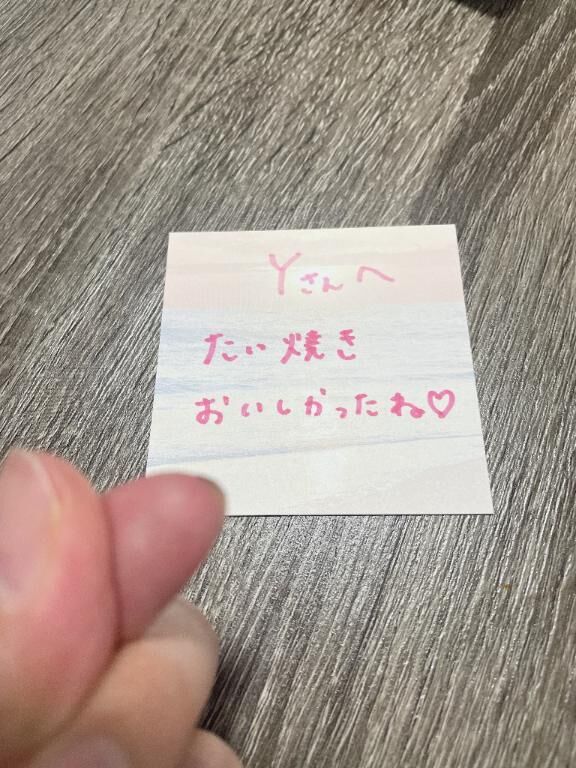 Yさんへ
たい焼き
おいしかったね♡